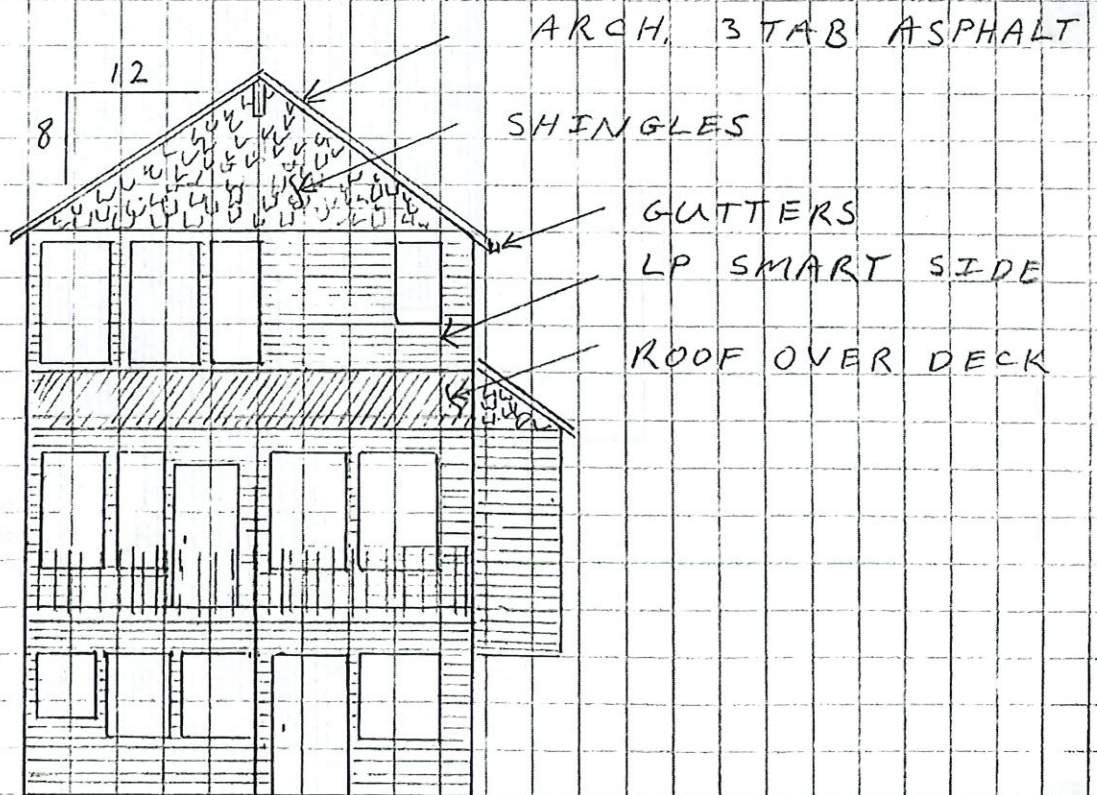 ARCH. 3 TAB ASPHALT
12
8
SHINGLES
GUTTERS
LP SMART SIDE
ROOF OVER DECK